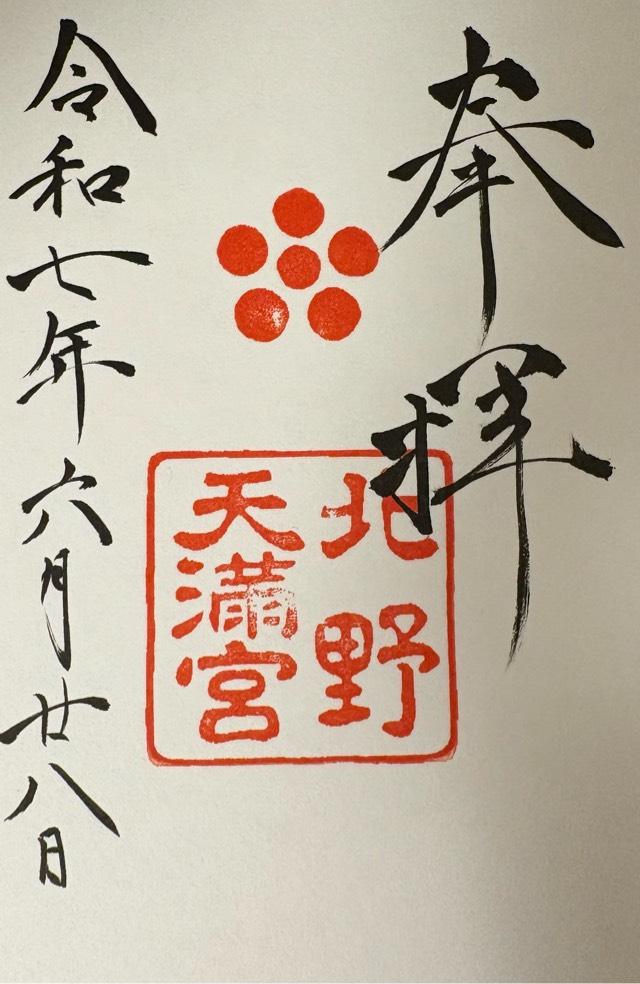 奉拝
北野
天満宮
令和七年六月廿八日